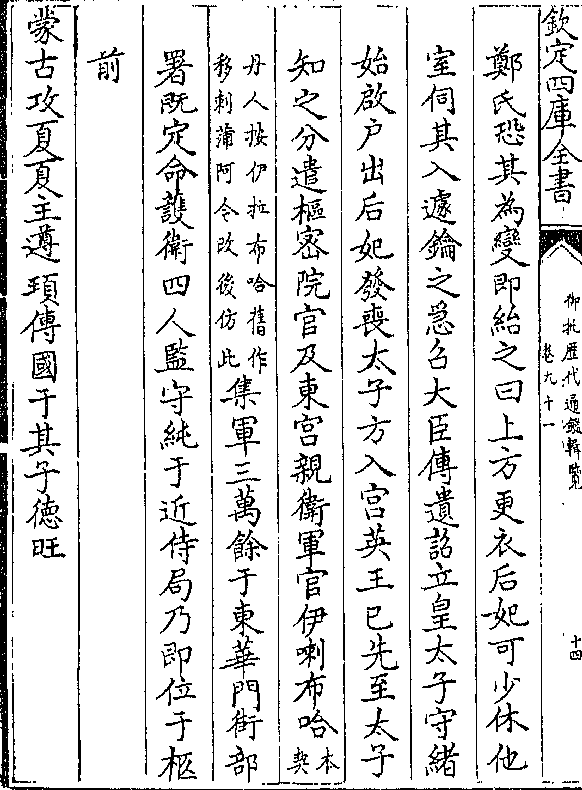 欽定四庫全書
御批歷代通鑑輯覽
卷九十一
十四
鄭氏恐其為變即紿之曰上方更衣后妃可少休他
室伺其入遽鑰之急召大臣傳遺詔立皇太子守緒
始啟户出后妃發喪太子方入宫英王已先至太子
知之分遣樞密院官及東宫親衛軍官伊喇布哈本契
丹人按伊拉布哈舊作
移剌蒲阿今改後仿此集軍三萬餘于東華門街部
署既定命護衛四人監守純于近侍局乃即位于柩
前
蒙古攻夏夏主遵頊傳國于其子德旺